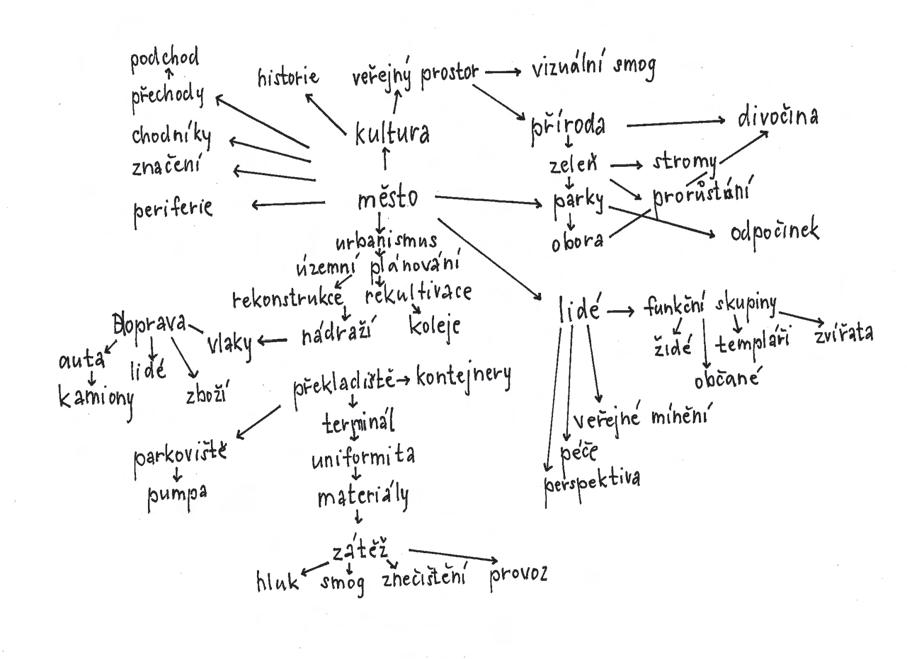 podchod
přechody
chodníky
značení
periferie
historie
veřejný prostor
vizuální smog
kultura
příroda
divočina
zeleň
stromy
město
parky
prorůstání
obora
odpočinek
urbanismus
územní plánování
rekonstrukce
rekultivace
nádraží
koleje
vlaky
Doprava
auta
lidé
kamiony
zboží
lidé
funkční skupiny
židé
templáři
zvířata
občané
veřejné mínění
péče
perspektiva
překladiště
kontejnery
terminál
parkoviště
uniformita
pumpa
materiály
zátěž
hluk
smog
znečištění
provoz